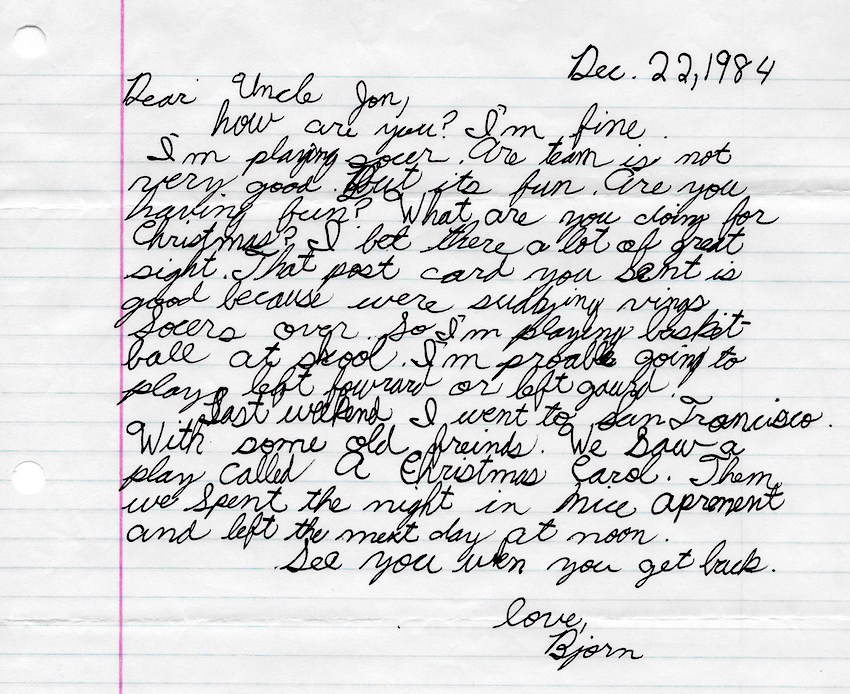 Dec. 22, 1984
Dear Uncle Jon,
how are you? I'm fine.
I'm playing socer. Are team is not
very good. But its fun. Are you
having fun? What are you doing for
Christmas? I bet there a lot of great
sight. That post card you sent is
good because were sudying vings
Socers over. So I'm playing baskit-
ball at skool. I'm proable going to
play left fowward or left gaurd.
Last weekend I went to San Francisco.
With some old freinds. We Saw a
play called A Christmas Carol. Them
we spent the night in nice aprement
and left the next day at noon.
See you when you get back.
love,
Bjorn